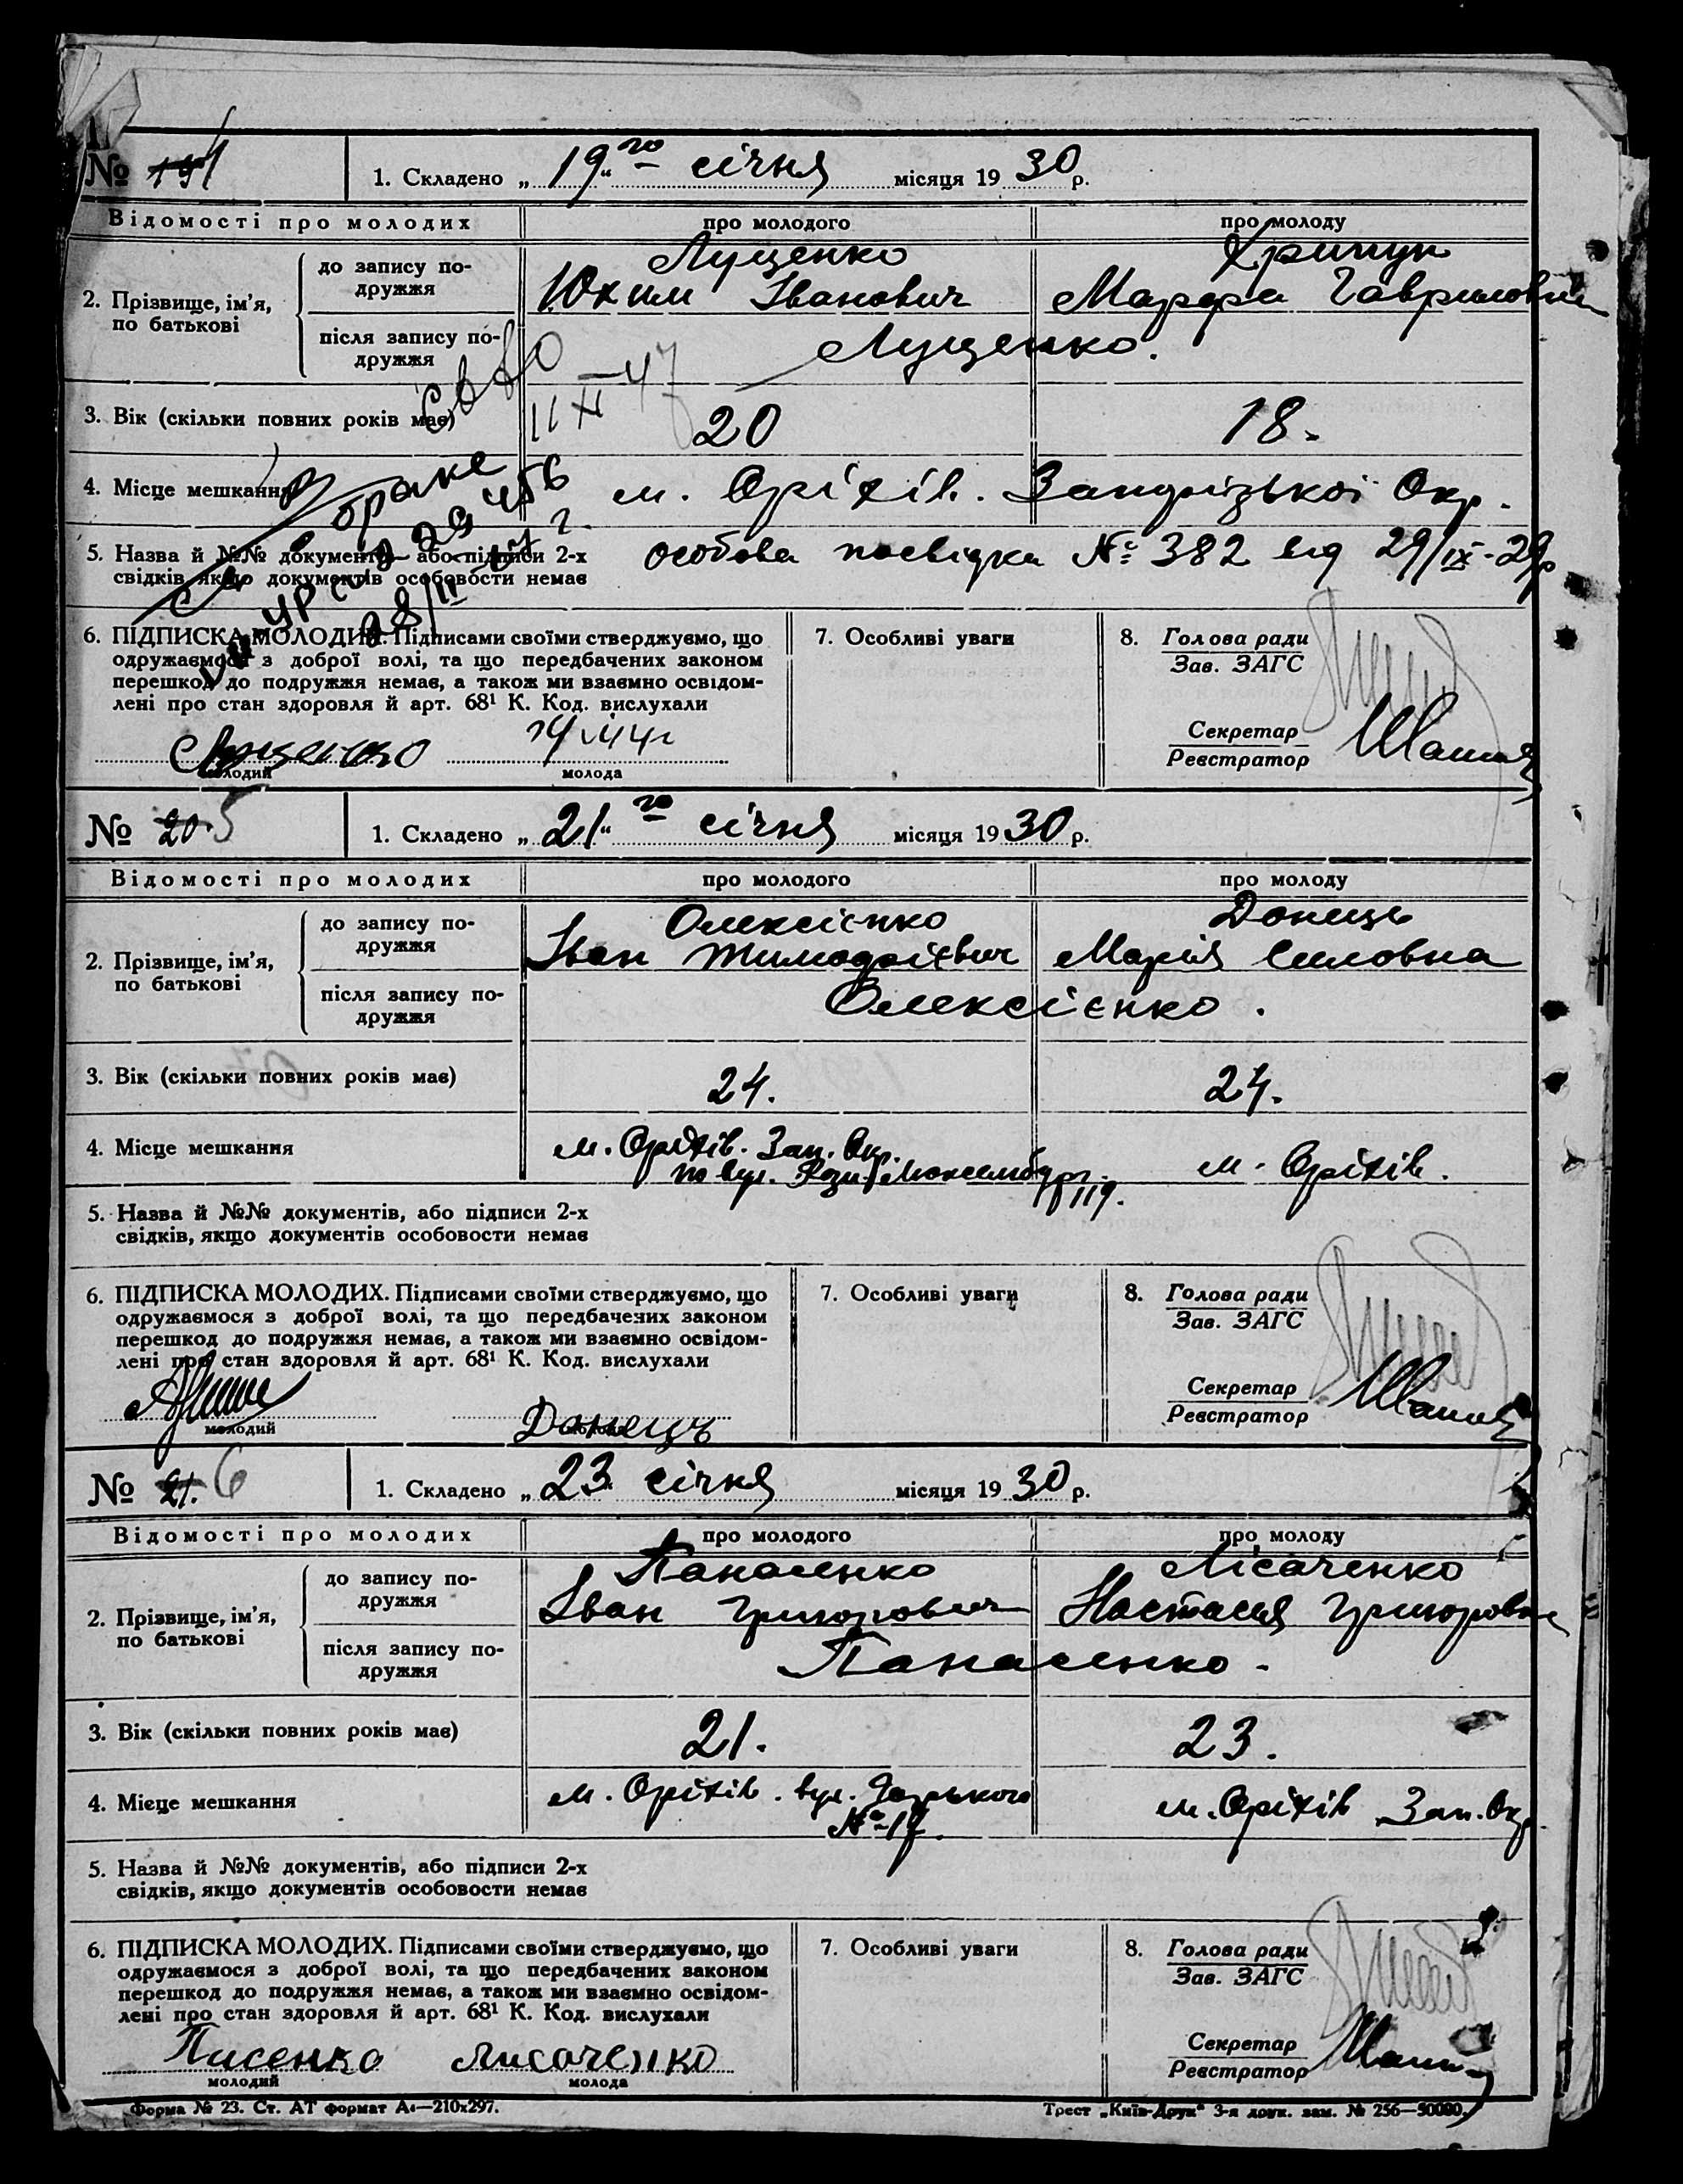 № 4
1. Складено „ 19го “ січня місяця 1930 р.
Відомості про молодих про молодого про молоду
2. Прізвище, ім’я, по батькові
до запису подружжя
Лущенко
Юхим Іванович
Марфа Гавриловна
після запису подружжя
Лущенко.
С ВЮ
11 XI 47
3. Вік (скільки повних років має) 20 18.
4. Місце мешкання м. Оріхів. Запорізької Окр.
5. Назва й №№ документів або підписи 2-х
свідків, якщо документів особовости немає
особова посвідка № 382 від 29/IX-29р
6. ПІДПИСКА МОЛОДИХ. Підписами своїми стверджуємо, що
одружаємося з доброї волі, та що передбачених законом
перешкод до подружжя немає, а також ми взаємно освідом-
лені про стан здоровля й арт. 68¹ К. Код. вислухали
Лущенко
молодий молода
7. Особливі уваги
8. Голова ради
Зав. ЗАГС
Секретар
Реєстратор
№ 20. 5
1. Складено „ 21 “ го січня місяця 1930 р.
Відомості про молодих про молодого про молоду
2. Прізвище, ім’я, по батькові
до запису подружжя
Олексієнко Донець
Іван Тимофієвич Марія Силовна
після запису подружжя
Олексієнко.
3. Вік (скільки повних років має) 24. 24.
4. Місце мешкання
м. Оріхів. Зап. Окр. м. Оріхів.
по вул. Рози Люксембург
119.
5. Назва й №№ документів, або підписи 2-х
свідків, якщо документів особовости немає
6. ПІДПИСКА МОЛОДИХ. Підписами своїми стверджуємо, що
одружаємося з доброї волі, та що передбачених законом
перешкод до подружжя немає, а також ми взаємно освідом-
лені про стан здоровля й арт. 68¹ К. Код. вислухали
Донець
молодий
7. Особливі уваги
8. Голова ради
Зав. ЗАГС
Секретар
Реєстратор
№ 21. 6
1. Складено „ 23 січня місяця 1930 р.
Відомості про молодих про молодого про молоду
2. Прізвище, ім’я, по батькові
до запису подружжя
Панасенко Лісаченко
Іван Григорович Настасия Григоровна
після запису подружжя
Панасенко.
3. Вік (скільки повних років має) 21. 23.
4. Місце мешкання
м. Оріхів. вул. Горького м. Оріхів Зап. Окр
№ 17.
5. Назва й №№ документів, або підписи 2-х
свідків, якщо документів особовости немає
6. ПІДПИСКА МОЛОДИХ. Підписами своїми стверджуємо, що
одружаємося з доброї волі, та що передбачених законом
перешкод до подружжя немає, а також ми взаємно освідом-
лені про стан здоровля й арт. 68¹ К. Код. вислухали
Писенко Лисаченко
молодий молода
7. Особливі уваги
8. Голова ради
Зав. ЗАГС
Секретар
Реєстратор
Форма № 23. Ст. АТ формат А₄—210x297.
Трест „Київ-Друк“ 3-я друк. зам. № 256—50000.